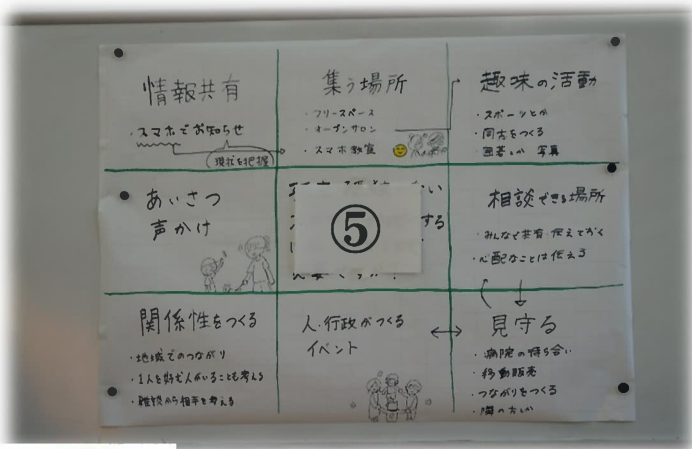 情報共有
・スマホでお知らせ
現状を把握
集う場所
・フリースペース
・オープンサロン
・スマホ教室
趣味の活動
・スポーツとか
・同方をつくる
・囲碁とか 写真
あいさつ
声かけ
⑤
相談できる場所
・みんなで共有・伝えておく
・心配なことは伝える
関係性をつくる
・地域でのつながり
・1人を好む人がいることも考える
・雑談から相手を考える
人・行政がつくる
イベント
見守る
・病院の待ち合い
・移動販売
・つながりをつくる
・隣の方とか